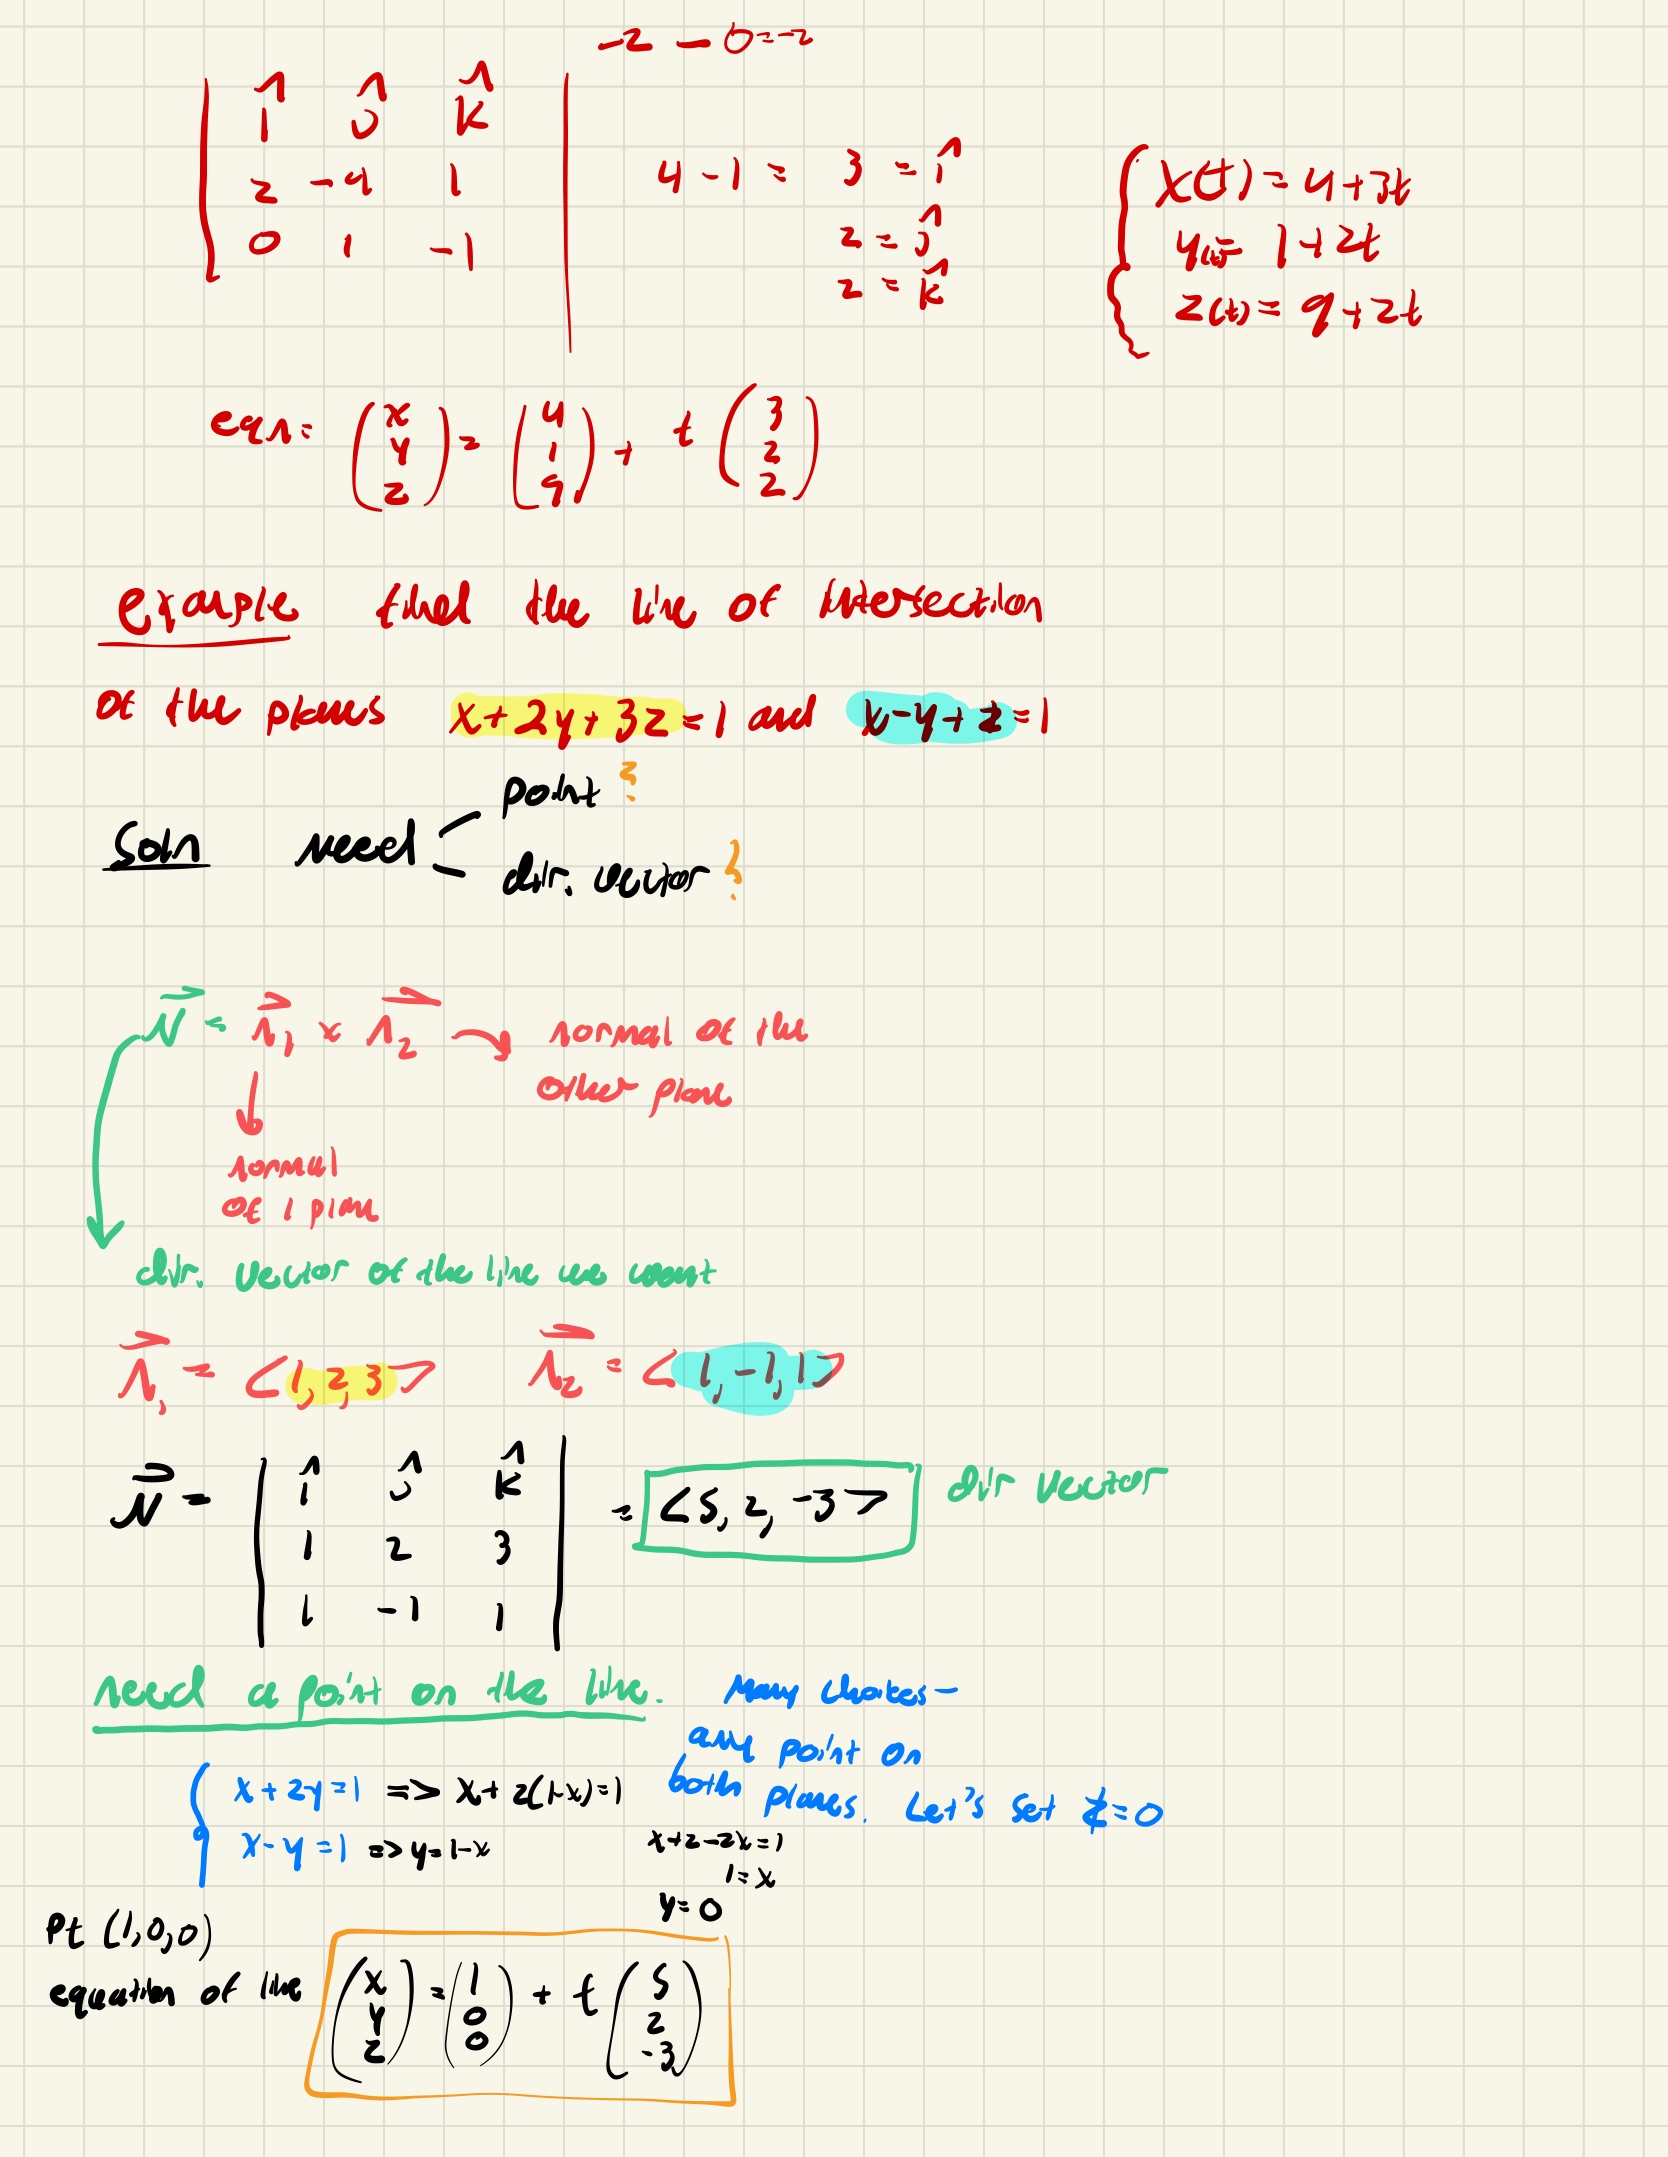 -2 - 0=-2
î ĵ k̂
2 -4 1
0 1 -1
4 - 1 = 3 = î
2 = ĵ
2 = k̂
x(t) = 4+3t
y(t)= 1+2t
z(t)= 9+2t
eqn= (x y z) = (4 1 9) + t (3 2 2)
example find the line of intersection
of the planes x+2y+3z=1 and x-y+z=1
point ?
Soln need
dir. vector ?
N = n1 x n2 → normal of the
other plane
normal
of 1 plane
dir. vector of the line we want
n1 = <1,2,3> n2 = <1,-1,1>
N = | î ĵ k̂ | = <5, 2, -3> dir vector
1 2 3
1 -1 1
need a point on the line. Many choices-
any point on
both planes. Let's set z=0
x+2y=1 => x+2(1-x)=1
x-y=1 => y=1-x
x+2-2x=1
1=x
y=0
Pt (1,0,0)
equation of line (x y z) = (1 0 0) + t (5 2 -3)